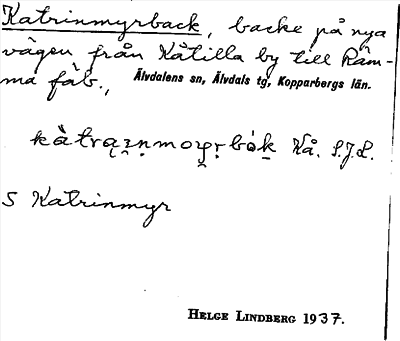 Katrinmyrback, backe på nya
vägen från Kåtilla by till Räm-
ma fäb., Älvdalens sn, Älvdals tg, Kopparbergs län.
Kå. S.J.L.
S Katrinmyr
HELGE LINDBERG 1937.